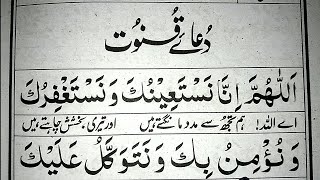 دُعائے قُنوت
اَللّٰهُمَّ اِنَّا نَسْتَعِيْنُكَ وَنَسْتَغْفِرُكَ
اے اللہ! ہم تجھ سے مدد مانگتے ہیں اور تیری بخشش چاہتے ہیں
وَنُؤْمِنُ بِكَ وَنَتَوَكَّلُ عَلَيْكَ